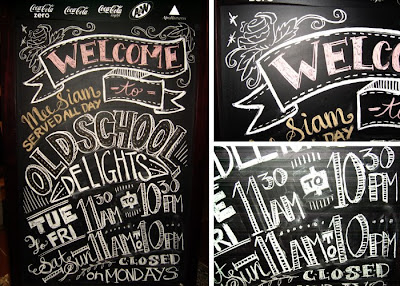 Coca-Cola zero
Coca-Cola
Coca-Cola light
A&W
WELCOME
-to-
Mee Siam
SERVED ALL DAY
OLD SCHOOL
DELIGHTS
TUE to FRI 11:30AM TO 10:30PM
Sat & Sun 11AM TO 10PM
CLOSED
on MONDAYS
WELCO
-to
Siam
DAY
DELIGH
11:30AM TO 10:30PM
Sun 11AM TO 10PM
CLOSED